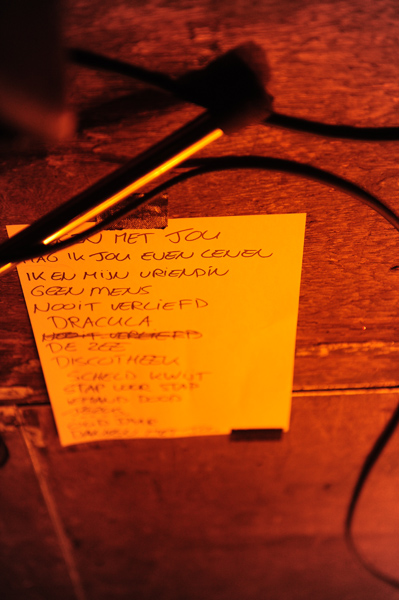 MET JOU
MAG IK JOU EVEN LENEN
IK EN MIJN VRIENDIN
GEEN MENS
NOOIT VERLIEFD
DRACULA
NOOIT VERLIEFD
DE ZEE
DISCOTHEEK
SCHELD KWIJT
STAP VOOR STAP
DOOD